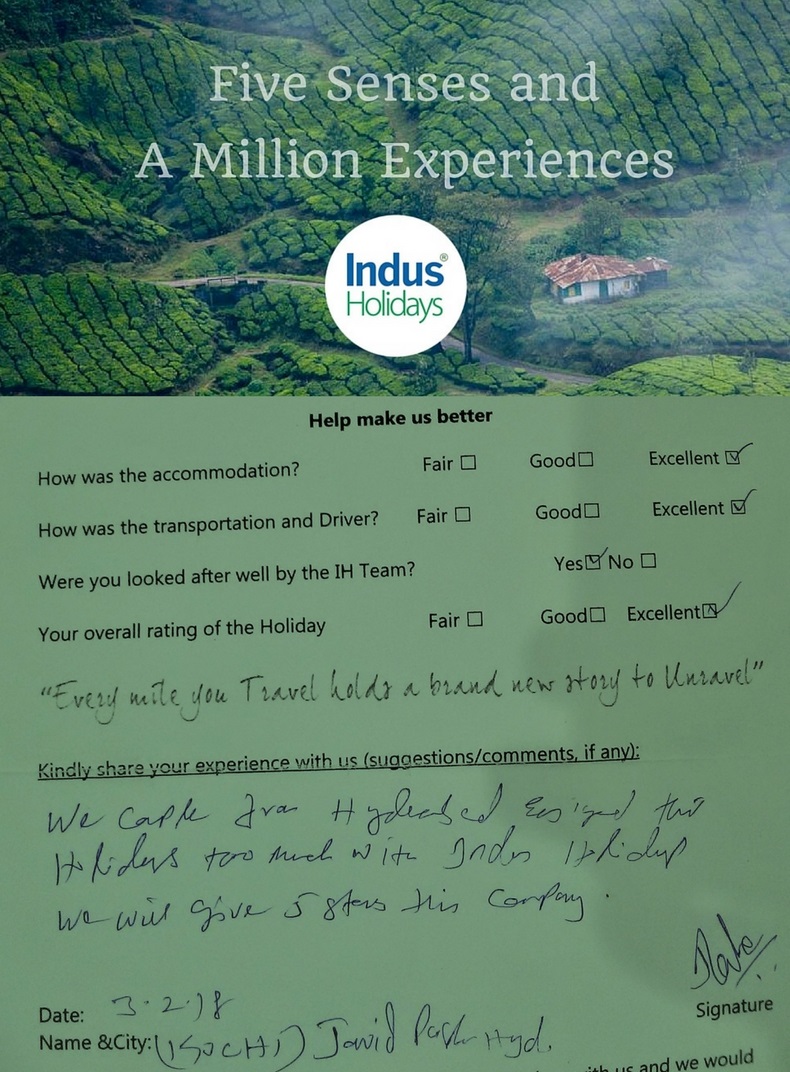 Five Senses and
A Million Experiences
Indus®
Holidays
Help make us better
How was the accommodation? Fair ☐ Good☐ Excellent ☑
How was the transportation and Driver? Fair ☐ Good☐ Excellent ☑
Were you looked after well by the IH Team? Yes☑ No ☐
Your overall rating of the Holiday Fair ☐ Good☐ Excellent☑
“Every mile you Travel holds a brand new story to Unravel”
Kindly share your experience with us (suggestions/comments, if any):
We from this
Holidays too much with Indus Holidays
We will give 5 stars this Company.
Date: 3.2.18
Signature
Name &City: Javid Hyd.
with us and we would